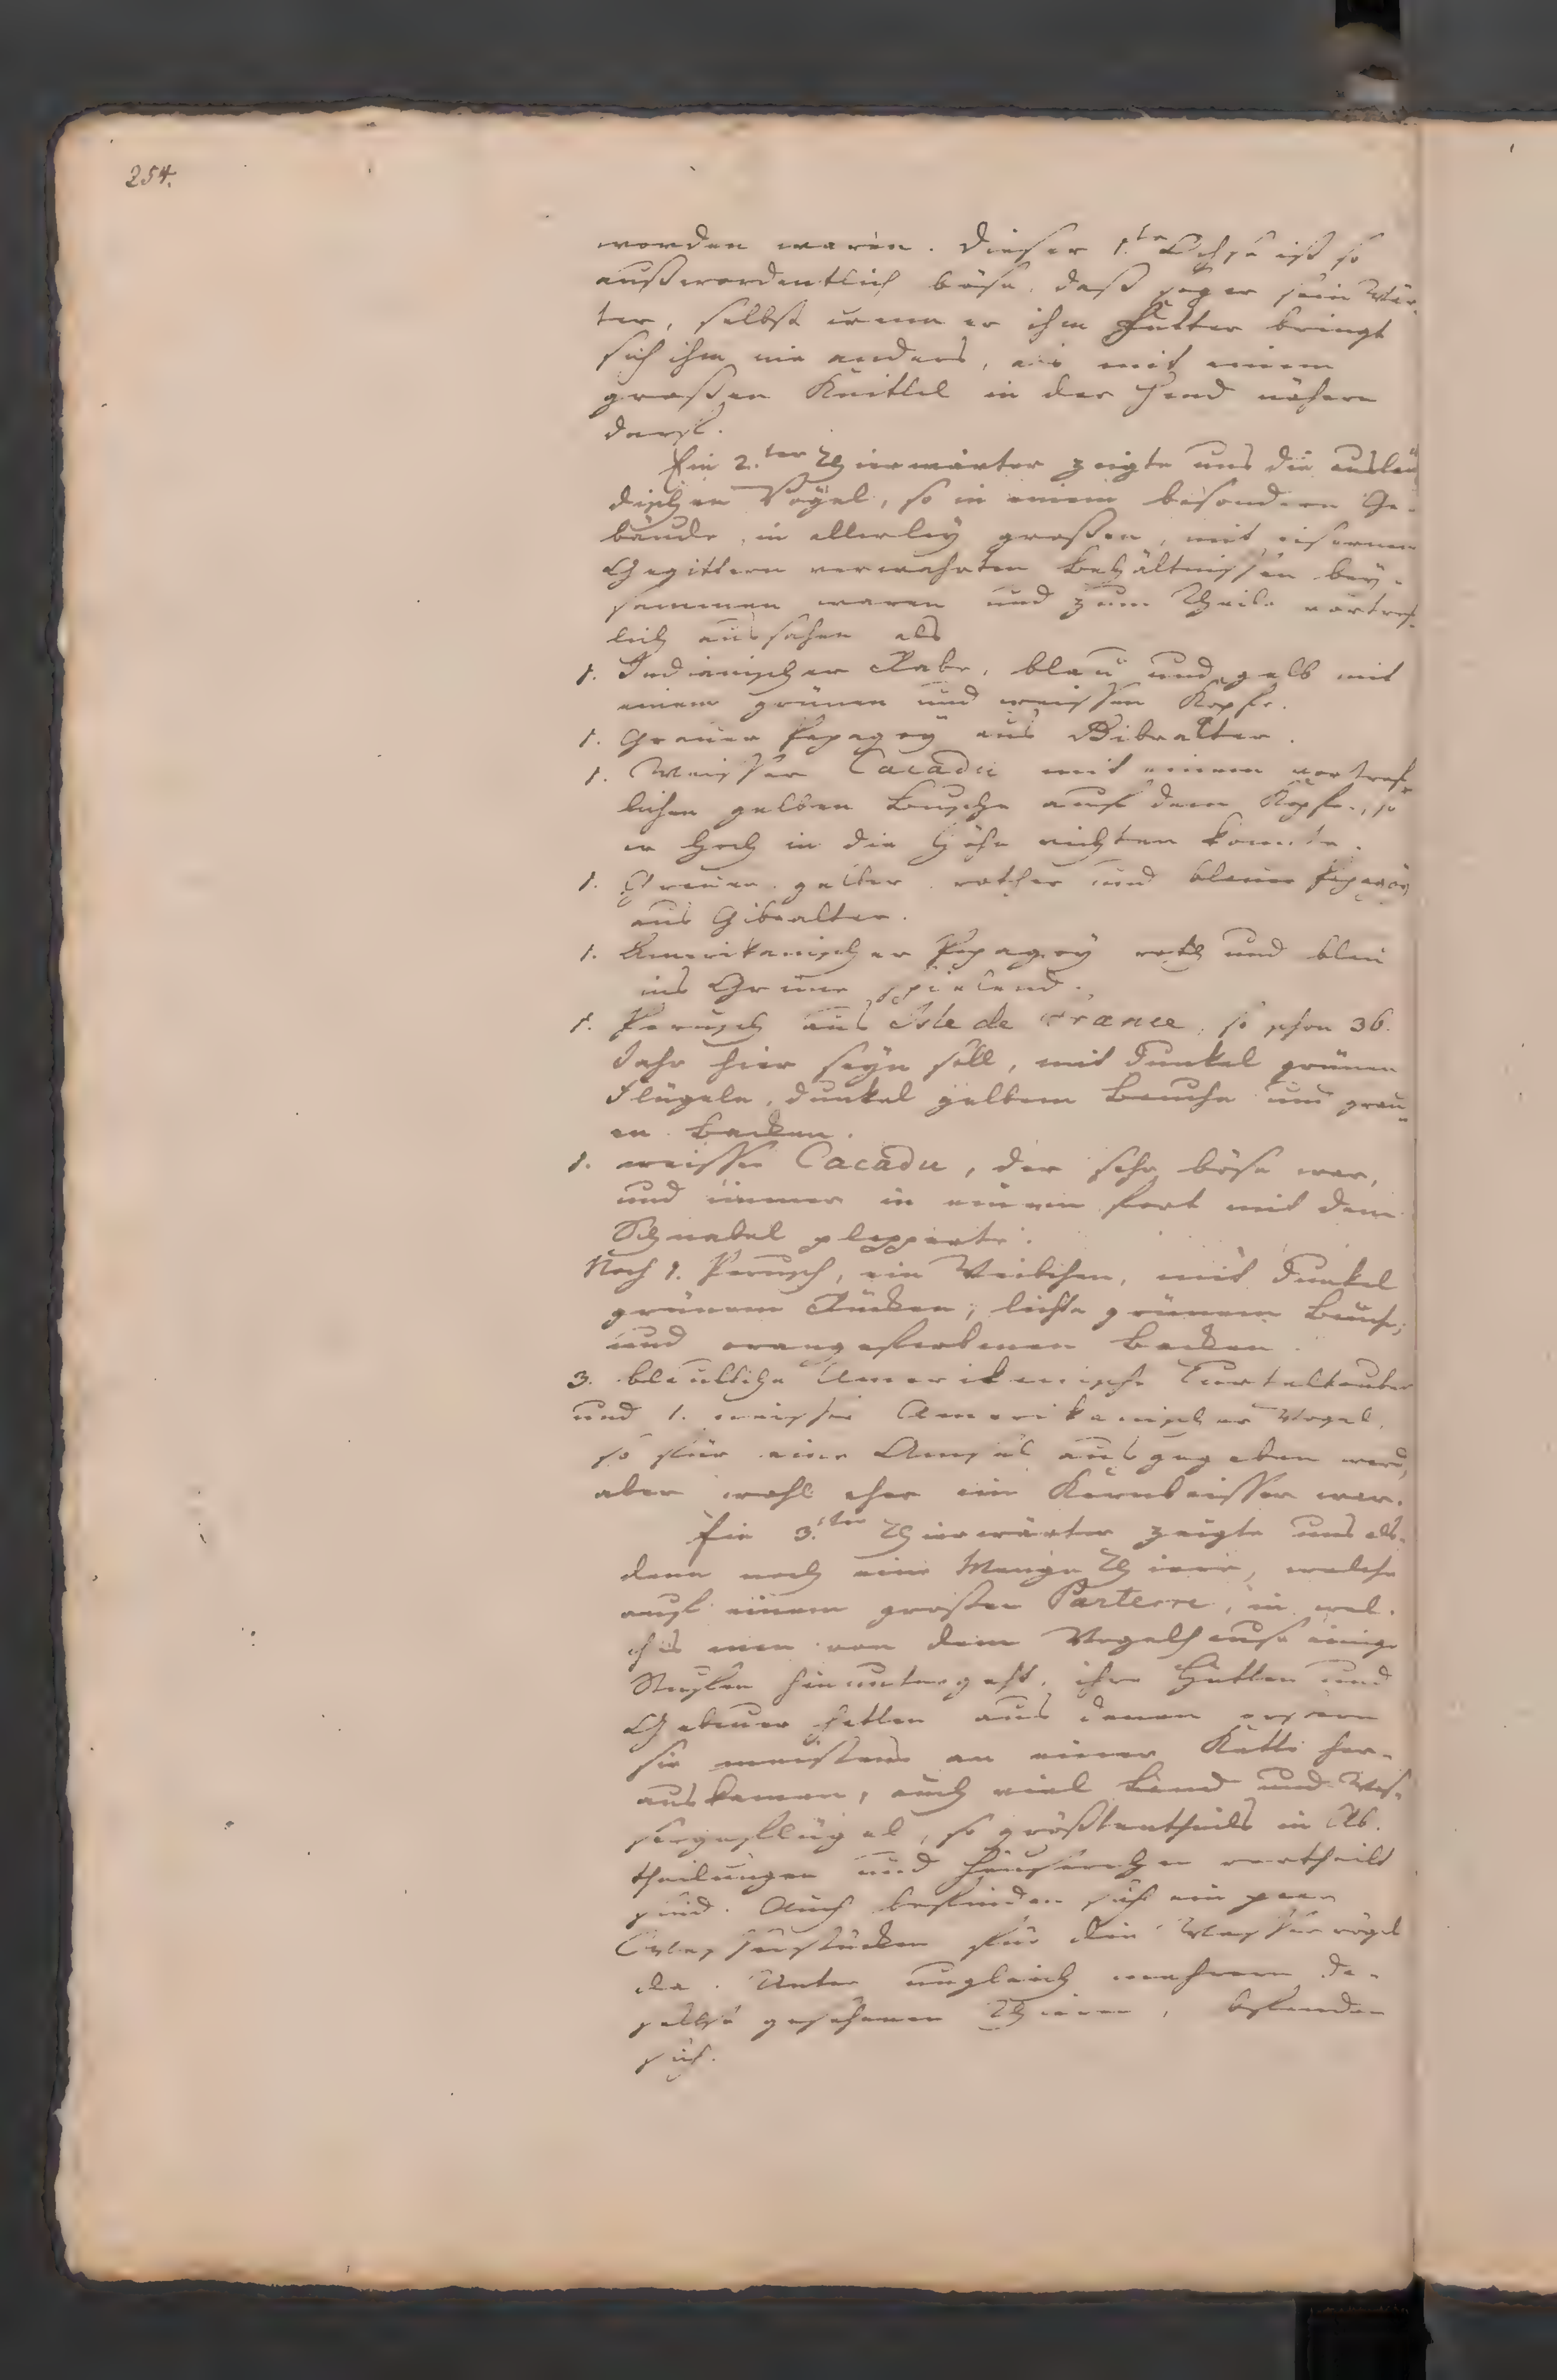 254.
worden waren. Dieser 1.te Ochse ist so
außerordentlich böse, daß sogar sein Wär-
ter, selbst wenn er ihm Futter bringt
sich ihm nie anders, als mit einem
großen Knittel in der Hand nähern
darf.
Ein 2.ter Thierwärter zeigte uns die auslän
dischen Vögel, so in einem besondern Ge-
bäude, in allerley großen, mit eisernen
Gegittern verwahrten Behältnissen bey-
sammen waren und zum Theile vortref-
lich aussahen als
1. Indianischer Rabe, blau und gelb mit
einem grünen und weissen Kopfe.
1. Grauer Papagey aus Gibralter.
1. Weisser Cacadu mit einem vortref-
lichen gelben Busche auf dem Kopfe, so
er hoch in die Höhe richten konnte.
1. Grüner gelber rother und blauer Papagey
aus Gibralter.
1. Amerikanischer Papagey roth und blau
ins Grüne spielend.
1. Perusch aus Isle de France, so schon 36.
Jahr hier seyn soll, mit dunkel grünen
Flügeln, dunkel gelbem Bauche und grau-
en Backen.
1. weisser Cacadu, der sehr böse war,
und immer in einem fort mit dem
Schnabel plapperte.
Noch 1. Perusch, ein Weibchen, mit dunkel
grünem Rücken, lichte grünem Bauche,
und orangefarbenen Backen.
3. bläulichte Amerikanische Turteltauben
und 1. weisser Amerikanischer Vogel,
so für eine Amsel ausgegeben ward,
aber wohl eher ein Kernbeisser war.
Ein 3.ter Thierwärter zeigte uns als-
dann noch eine Menge Thiere, welche
auf einem großen Parterre, in wel-
ches man von dem Vogelhause einige
Stufen hinuntergeht, ihre Hütten und
Gebauer hatten aus denen erstern
sie meistens an einer Kette her-
auskamen, auch viel Land und Was-
sergeflügel, so größtentheils in Ab-
theilungen und Häuserchen vertheilt
sind. Auch befinden sich ein paar
Wasserstücken für die Wasservögel
da. Unter ungleich mehrern da-
selbst gesehenen Thieren, befanden
sich.